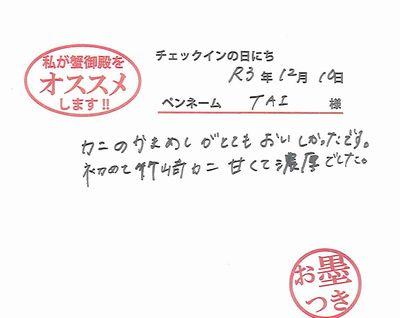 私が蟹御殿を
オススメ
します!!
チェックインの日にち
R3年12月10日
ペンネーム TAI 様
カニのかまめしがとてもおいしかったです。
初めて竹崎カニ 甘くて濃厚でした。
お墨
つき